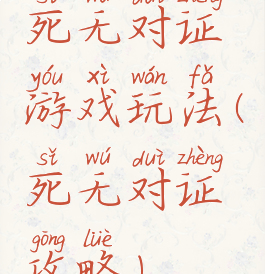 sǐ wú duì zhèng
死无对证
yóu xì wán fǎ
游戏玩法(
sǐ wú duì zhèng
死无对证
gōng lüè
攻略)